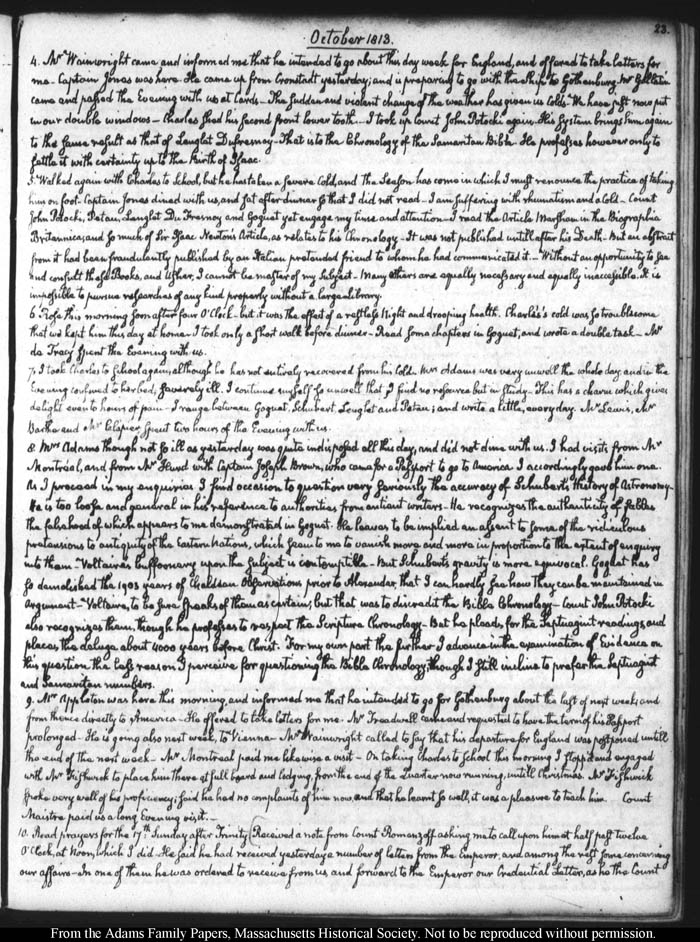 23.
October 1813.
4. Mr Wainwright came and informed me that he intended to go about this day week for England, and offered to take letters for
me. Captain Jones was here. He came up from Cronstadt yesterday; and is preparing to go with the ship to Gothenburg. Mr Gallatin
came and passed the Evening with us at Cards. The sudden and violent change of the weather has given us Colds. We have just now put
in our double windows. Charles shed his second front lower tooth. I took up Count John Potocki again. His System brings him again
to the same result as that of Lenglet Dufresnoy. That is to the Chronology of the Samaritan Bible. He professes however only to
settle it with certainty up to the Birth of Isaac.
5. Walked again with Charles to School, but he has taken a severe Cold, and the Season has come in which I must renounce the practice of taking
him on foot. Captain Jones dined with us, and sat after dinner so that I did not read. I am suffering with rheumatism and a Cold. Count
John Potocki, Petau, Lenglet Du Fresnoy and Goguet yet engage my time and attention. I read the Article Marsham in the Biographia
Britannica; and so much of Sir Isaac Newton's Article, as relates to his Chronology. It was not published untill after his Death. But an abstract
from it had been fraudulently published by an Italian pretended friend to whom he had communicated it. Without an opportunity to see
and consult these Books, and Usher, I cannot be master of my Subject. Many others are equally necessary and equally inaccessible. It is
impossible to pursue researches of any kind properly without a large library.
6. Rose this morning soon after four O'Clock. but it was the effect of a restless Night and drooping health. Charles's cold was so troublesome
that we kept him this day at home. I took only a short walk before dinner. Read some chapters in Goguet, and wrote a double task. Mr
de Tracy spent the Evening with us.
7. I took Charles to School again; although he has not entirely recovered from his Cold. Mrs Adams was very unwell the whole day and in the
Evening confined to her bed, severely ill. I continue myself so unwell that I find no resource but in Study. This has a charm which gives
delight even to hours of pain. I range between Goguet, Schubert, Lenglet and Petau; and write a little, every day. Mr Lewis, Mr
Barker and Mr spent two hours of the Evening with us.
8. Mrs Adams though not so ill as yesterday was quite indisposed all this day, and did not dine with us. I had visits from Mr
Montréal, and from Mr Hurd with Captain Joseph Brown, who came for a Passport to go to America. I accordingly gave him one.
As I proceed in my enquiries I find occasion to question very seriously the accuracy of Schubert's History of Astronomy.
He is too loose and general in his reference to authorities from antient writers. He recognizes the authenticity of fables
the falsehood of which appears to me demonstrated in Goguet. He leaves to be implied an assent to some of the ridiculous
pretensions to antiquity of the Eastern Nations, which seem to me to vanish more and more in proportion to the extent of enquiry
into them. Voltaire's buffoonery upon the subject is contemptible. But Schubert's gravity is more equivocal. Goguet has
so demolished the 1903 years of Chaldean Observations prior to Alexander, that I can hardly see how they can be maintained in
argument. Voltaire, to be sure speaks of them as certain; but that was to discredit the Bible Chronology. Count John Potocki
also recognizes them, though he professes to respect the Scripture Chronology. But he pleads, for the Septuagint readings, and
places the deluge about 4000 years before Christ. For my own part the further I advance in the examination of Evidence on
this question the less reason I perceive for questioning the Bible Chronology; though I still incline to prefer the Septuagint
and Samaritan numbers.
9. Mr Appleton was here this morning, and informed me that he intended to go for Gothenburg about the last of next week; and
from thence directly to America. He offered to take letters for me. Mr Treadwell came and requested to have the term of his Passport
prolonged. He is going also next week, to Vienna. Mr Wainwright called to say that his departure for England was postponed untill
the end of the next week. Mr Montreal paid me likewise a visit. On taking Charles to School this morning I stopp'd and engaged
with Mr Fishwick to place him there at full board and lodging, from the end of the Quarter now running, untill Christmas. Mr Fishwick
spoke very well of his proficiency; said he had no complaints of him now, and that he learnt so well, it was a pleasure to teach him. Count
Maistre paid us a long Evening visit.
10. Read prayers for the 17th Sunday after Trinity. Received a note from Count Romanzoff asking me to call upon him at half past twelve
O'Clock, at Noon, which I did. He said he had received yesterday a number of letters from the Emperor, and among the rest some concerning
our affairs. In one of them he was ordered to receive from us, and forward to the Emperor our Credential Letter, as he the Count
From the Adams Family Papers, Massachusetts Historical Society. Not to be reproduced without permission.